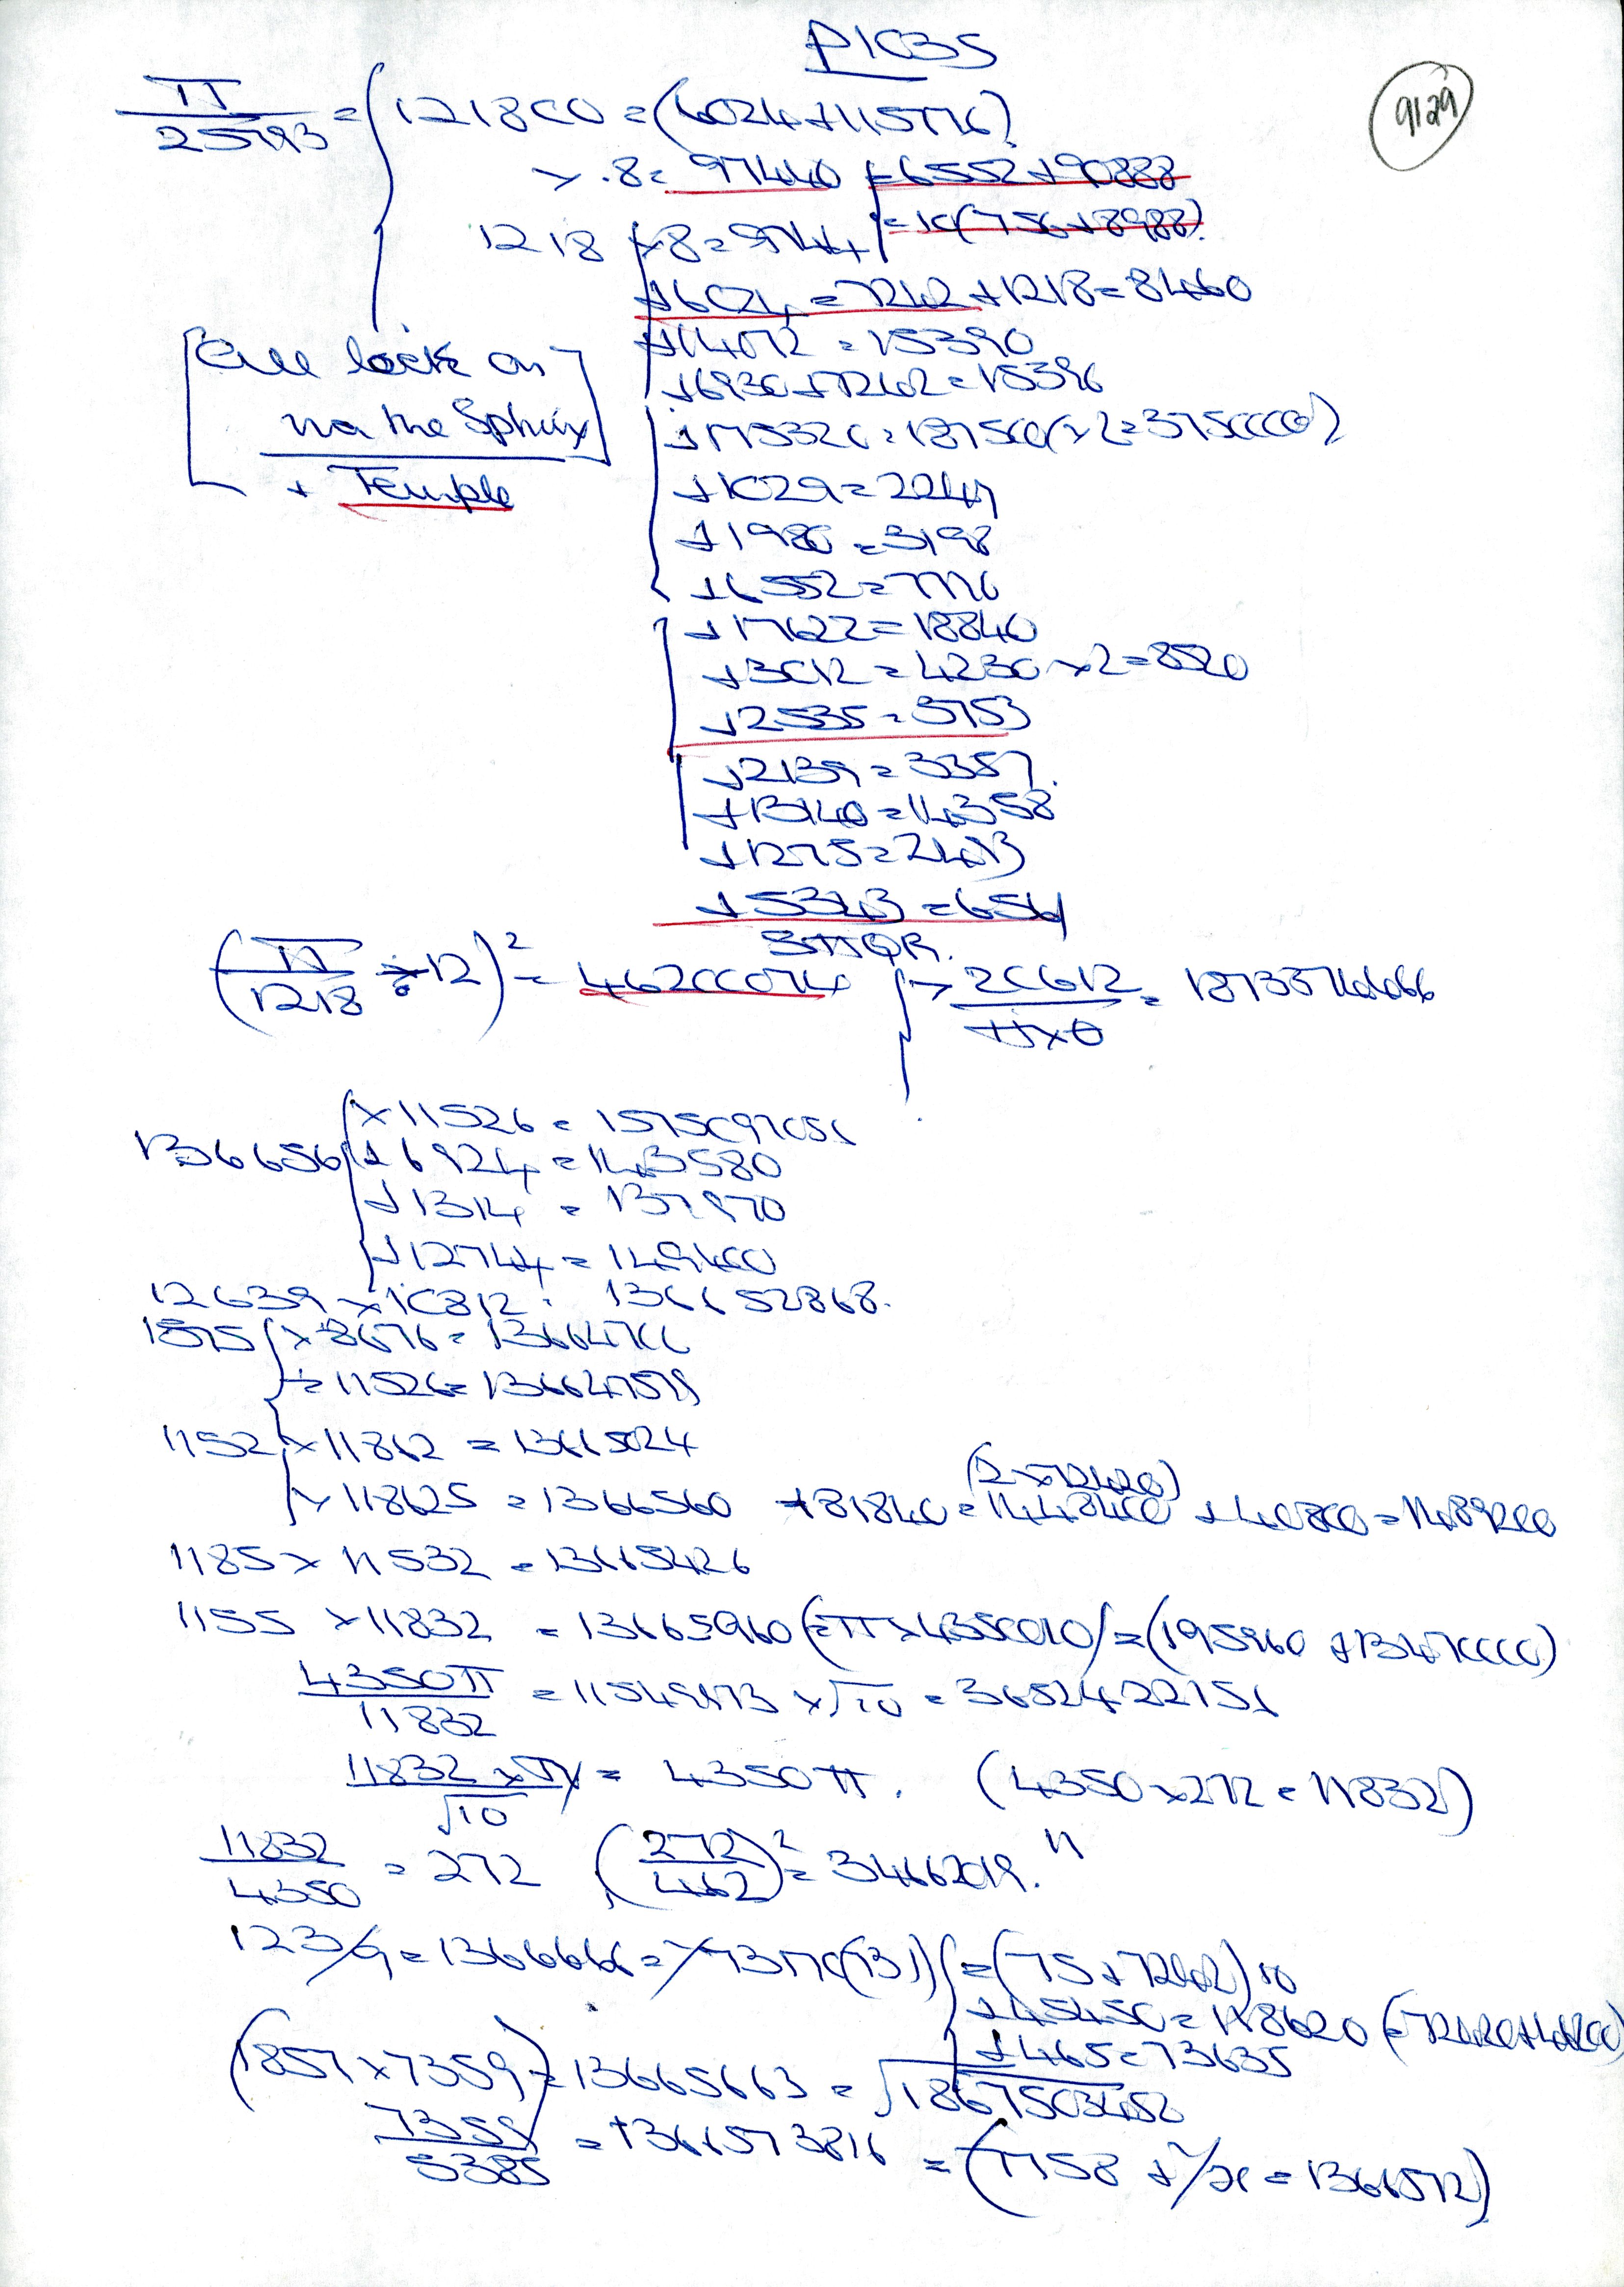 P1C35
9129
π/25793 = { 121800 = (6024+115776)
× .8 = 97440 = 6552+90888
= 10(756+8988)
1218 ×8=9744
+6024 = 7242+1218=8460
+14072 = 15390
+6930+7242=15396
+175320=187500(×2=3750000)
+1029=2247
+1980=3198
+6552=7770
+17622=18840
+3012=4230 ×2=8520
+2535=3753
+2139=3357.
+13140=14358
+1275=2493
+5343=6561
[All lock on
via the Sphinx
+ Temple
(π/1218 ÷12)² = 46200074 } > 20612/π×θ =
136656 { ×11526 = 1575097051
+6924=143580
+1314 = 137970
+12744=149400
12639 ×10812 = 136652868.
1575 { ×8676=13664700
÷11526=136647579
1152 { ×11862 = 13665024
×11862.5 = 1366560 +81840=1448400 (2×72420) +40800=1489200
1185 × 11532 = 13665426
1155 ×11832 = 13665960 (=π×4350010) = (195960 +13470000)
4350π/11832 = 11549873 ×√10 = 3652422151
11832 × /√10 = 4350π. (4350×272=11832)
11832/4350 = 272 (272/462)² = 3466209. "
123/9=1366666= (731) { =(75+7242)10
+45450=118620 (=72420+46200)
+465=73635
(1857×7359)=13665663 = √1867503452
7359/5385 = 1366573816 = (1758 + y/x = 1366572)